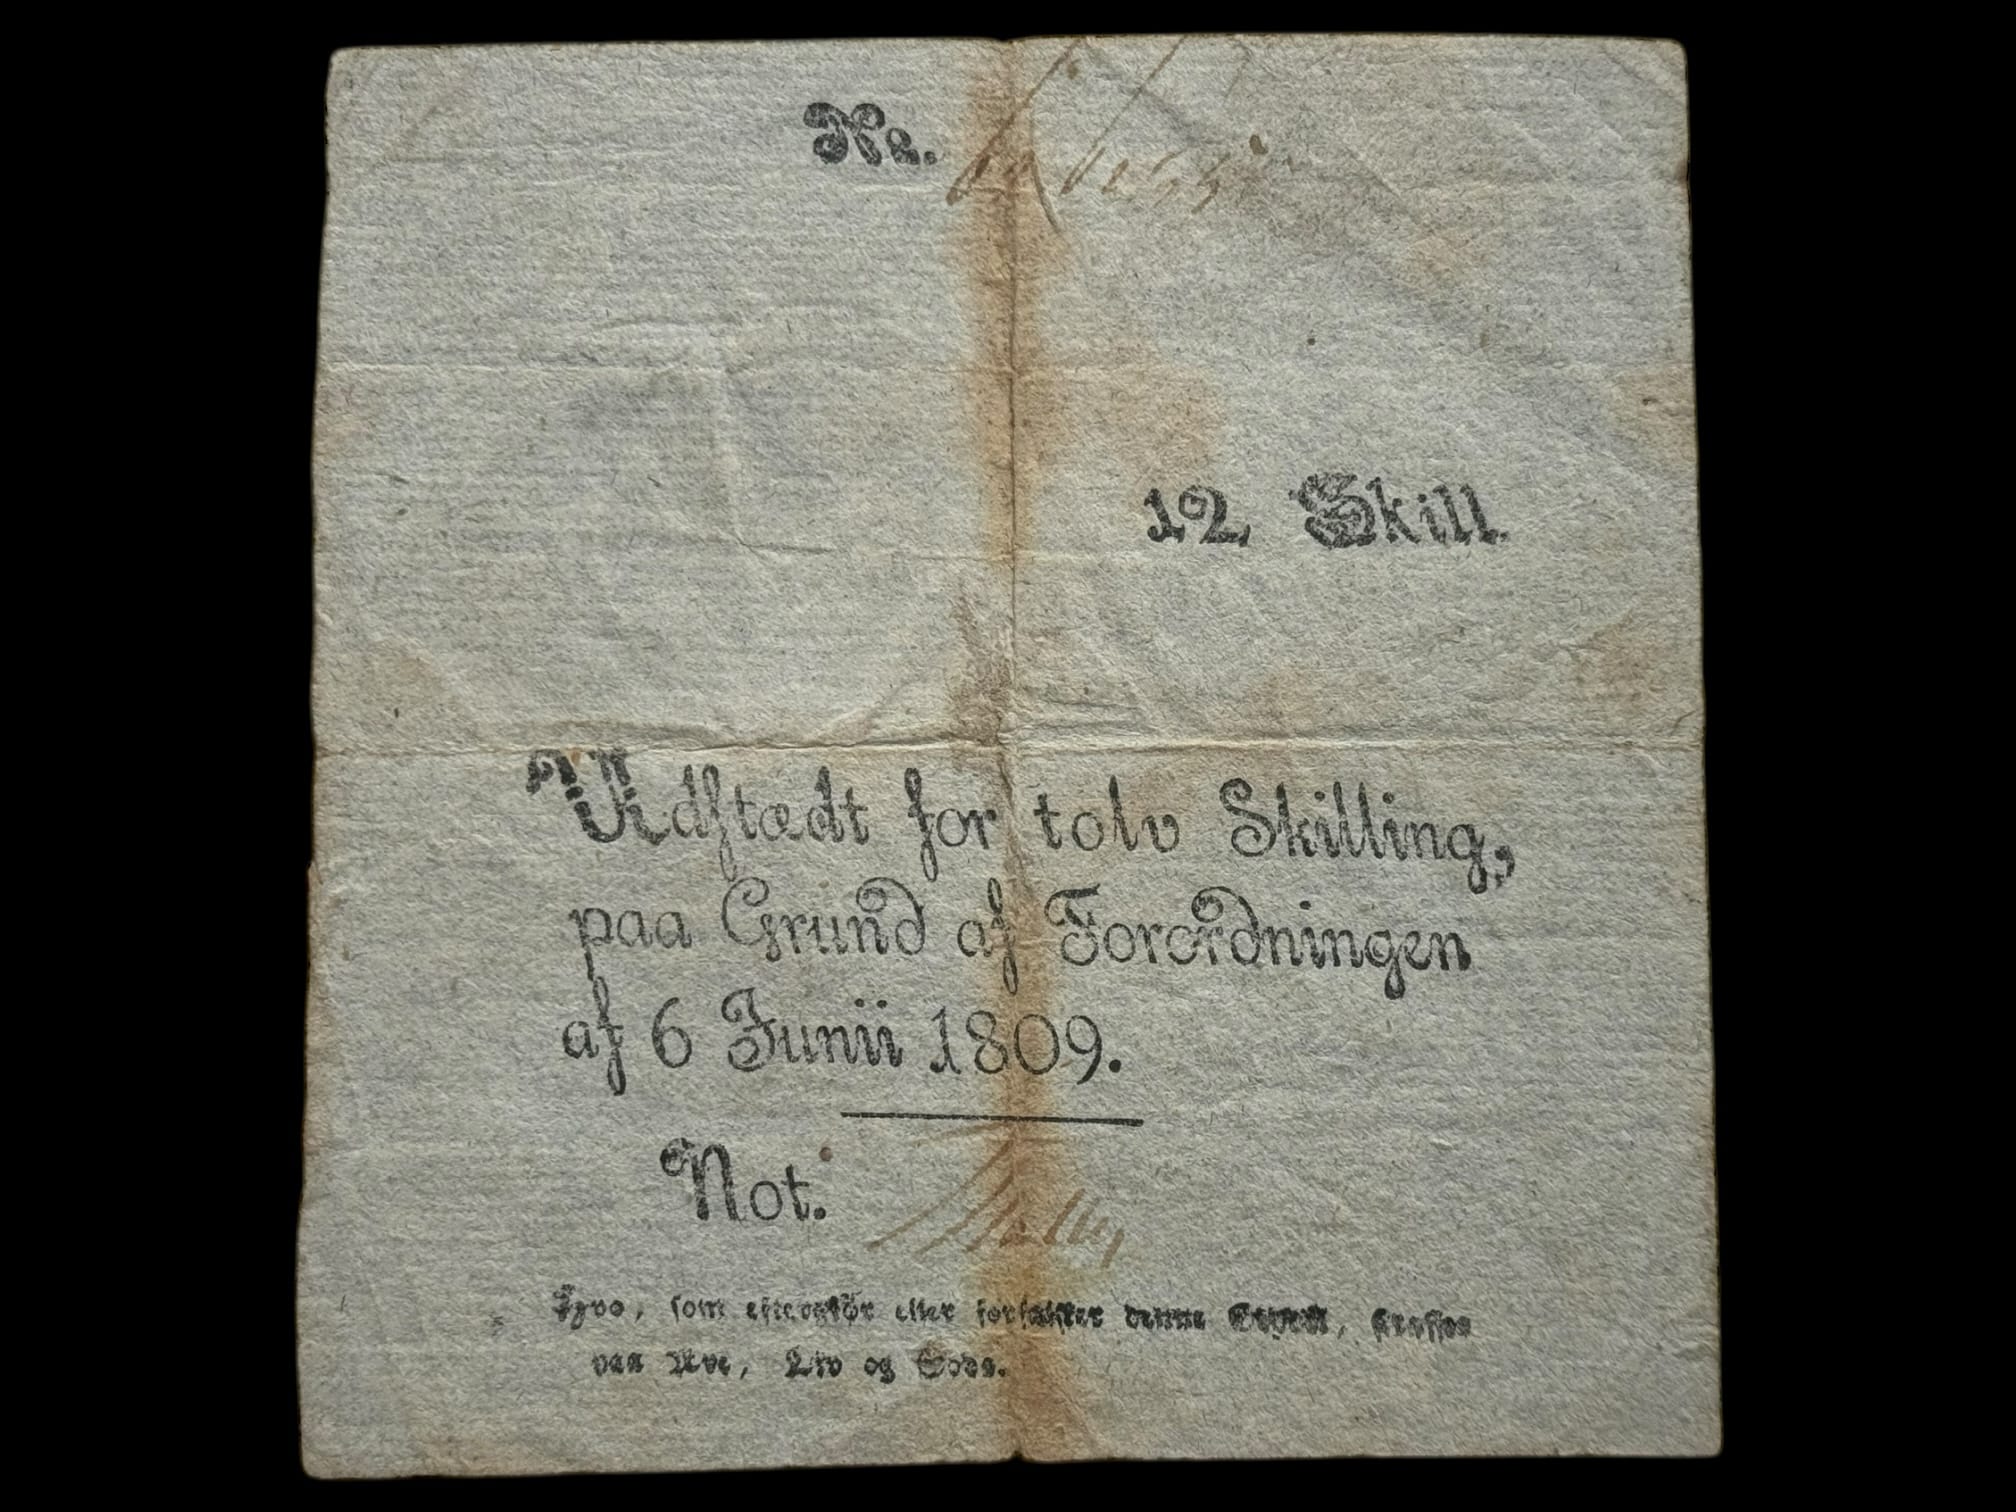 No.
12 Skill.
Udstædt for tolv Skilling,
paa Grund af Forordningen
af 6 Junii 1809.
Not.
Hvo, som eftergiör eller forfalsker denne Seddel, straffes
paa Ære, Liv og Gods.